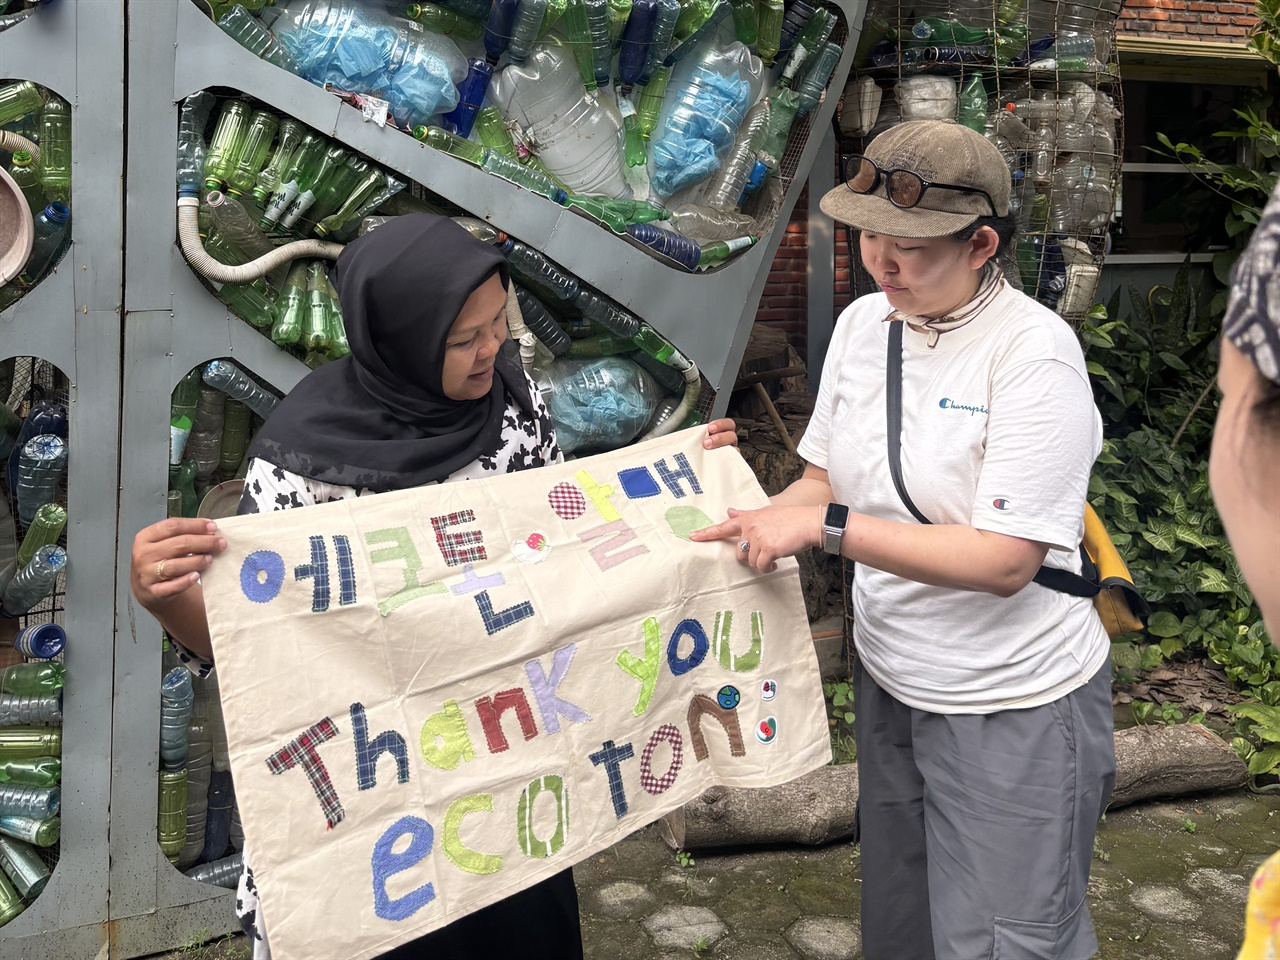 에코톤 안은 애
Thank you
eco ton
Champio